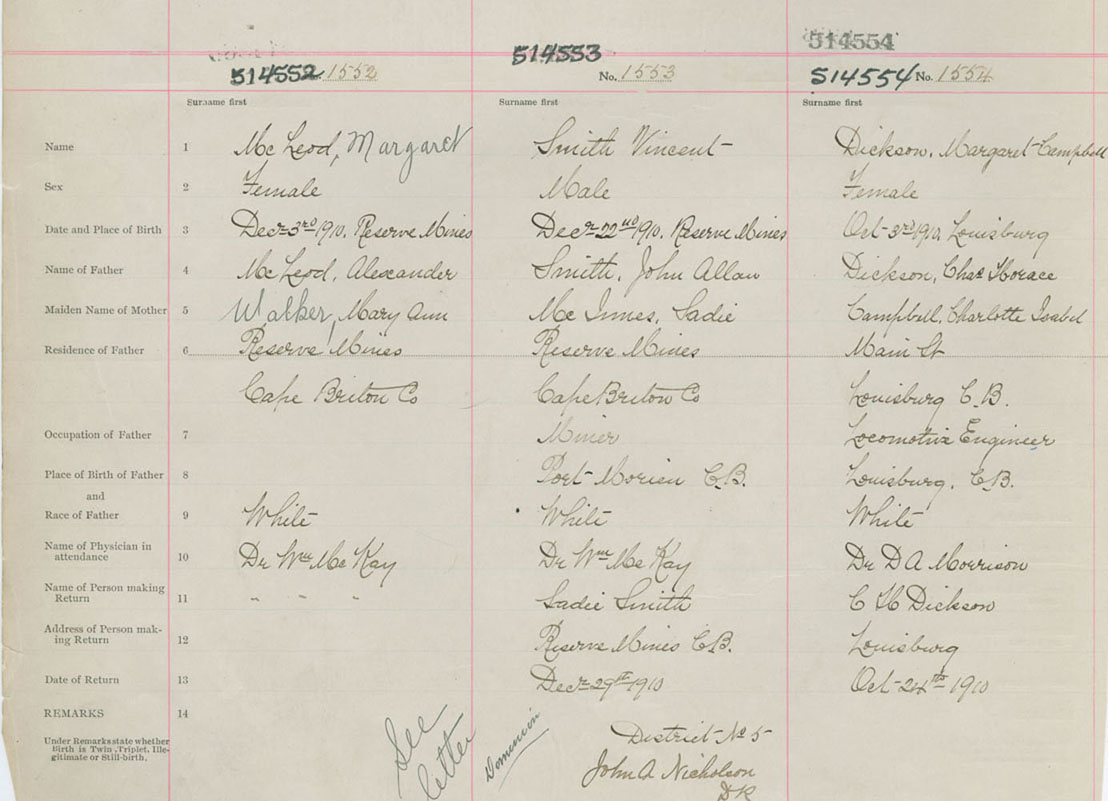 514553
514554
514552 1552
No. 1553
514554 No. 1554
Surname first Surname first Surname first
Name 1 Mc Leod, Margaret Smith Vincent Dickson, Margaret Campbell
Sex 2 Female Male Female
Date and Place of Birth 3 Decr 3rd 1910. Reserve Mines Decr 22nd 1910. Reserve Mines Oct 3rd 1910. Louisburg
Name of Father 4 Mc Leod, Alexander Smith, John Allan Dickson, Chas Horace
Maiden Name of Mother 5 Walker, Mary Ann Mc Innes, Sadie Campbell, Charlotte Isabel
Residence of Father 6 Reserve Mines Reserve Mines Main St
Cape Briton Co Cape Briton Co Louisburg C.B.
Occupation of Father 7 Miner Locomotive Engineer
Place of Birth of Father 8 Port Morien C.B. Louisburg, C.B.
and
Race of Father 9 White White White
Name of Physician in
attendance 10 Dr Wm Mc Kay Dr Wm Mc Kay Dr D A Morrison
Name of Person making
Return 11 " " " Sadie Smith C H Dickson
Address of Person mak-
ing Return 12 Reserve Mines C.B. Louisburg
Date of Return 13 Decr 29th 1910 Oct 24th 1910
REMARKS 14
Under Remarks state whether
Birth is Twin, Triplet, Ille-
gitimate or Still-birth.
See
letter
Dominion
District No 5
John A Nicholson
DR